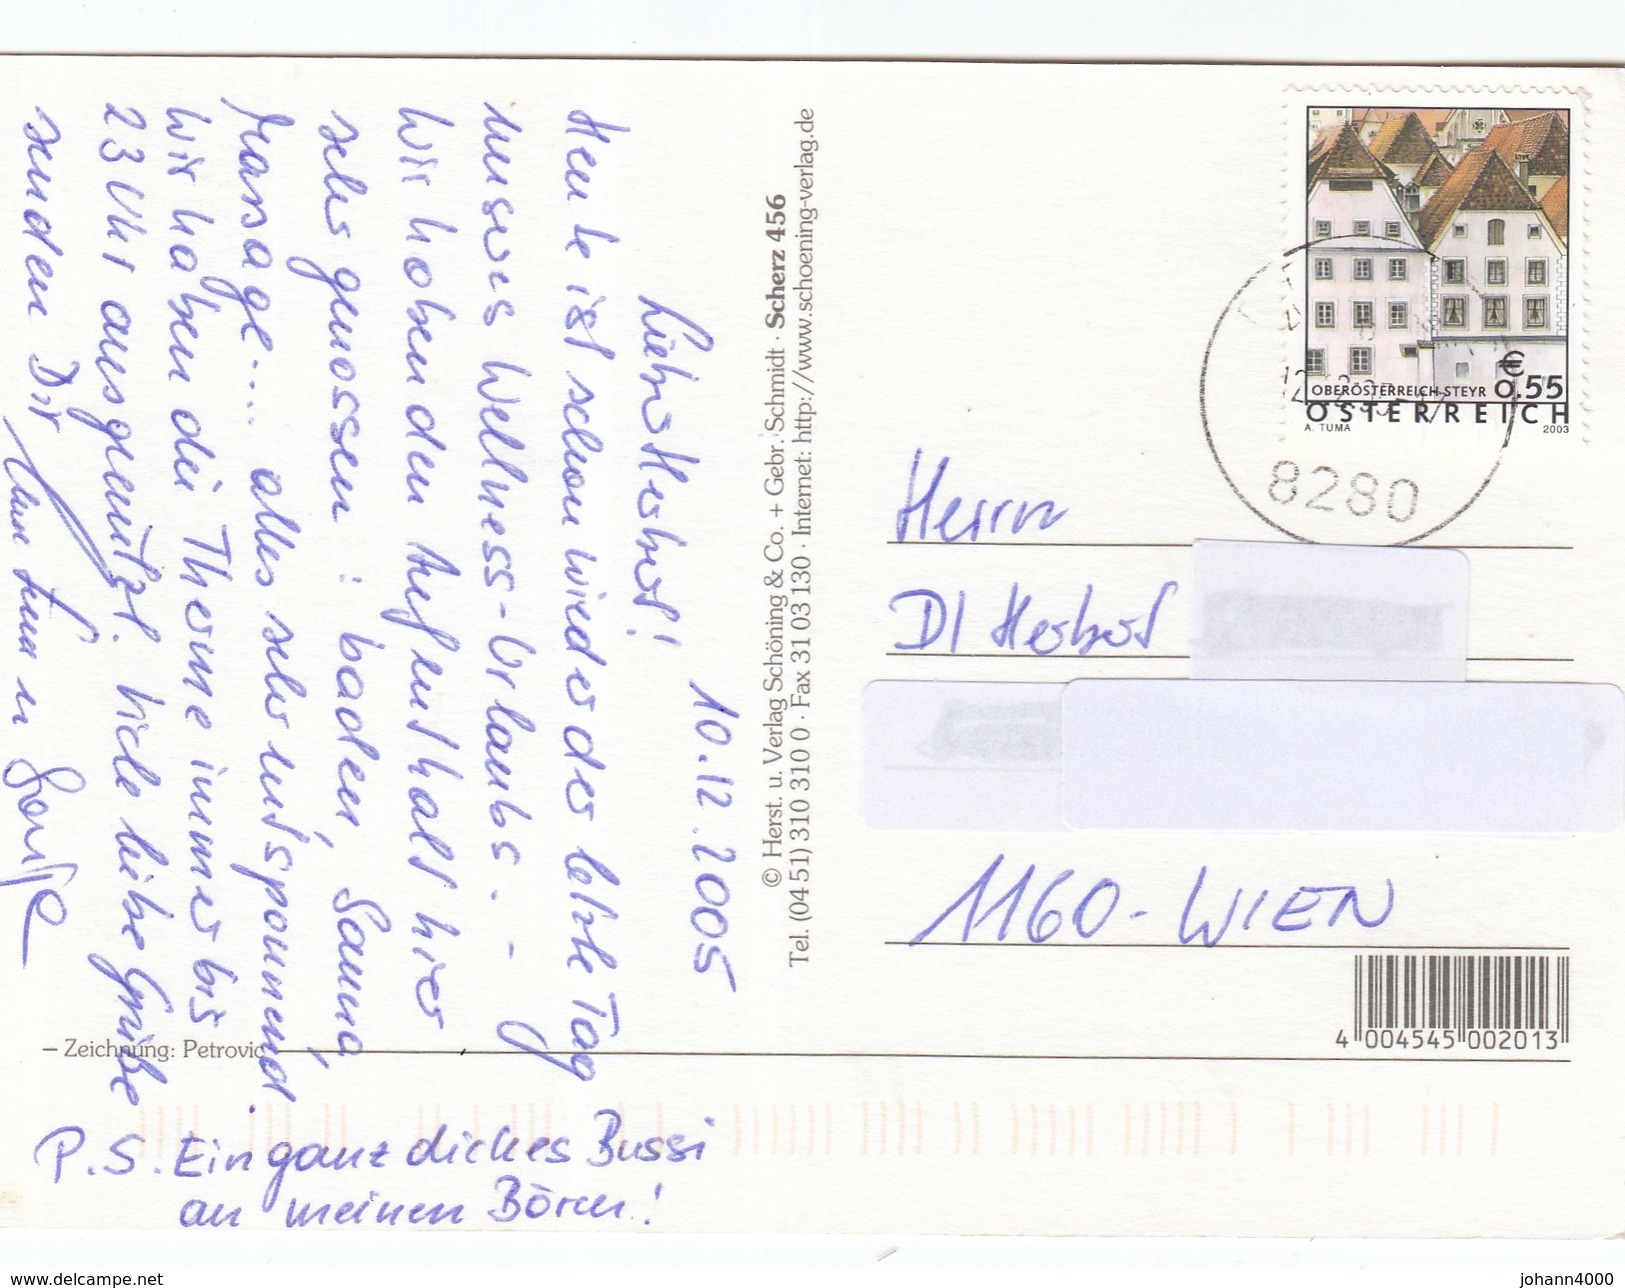 10.12.2005
Liebster Herbert!
Heute ist schon wieder der letzte Tag
unseres Wellness-Urlaubs. -
Wir haben den Aufenthalt hier
sehr genossen: baden, Sauna,
Massage.... alles sehr entspannend
Wir haben die Therme immer bis
23 Uhr ausgenützt. Viele liebe Grüße
senden Dir
P.S. Ein ganz dickes Bussi
an meinen Bären!
© Herst. u. Verlag Schöning & Co. + Gebr. Schmidt · Scherz 456
Tel. (04 51) 310 310 0 · Fax 31 03 130 · Internet: http://www.schoening-verlag.de
– Zeichnung: Petrovic
OBERÖSTERREICH-STEYR €0.55
ÖSTERREICH
A. TUMA 2003
8280
Herrn
DI Herbert
1160-WIEN
4 004545 002013
www.delcampe.net
johann4000